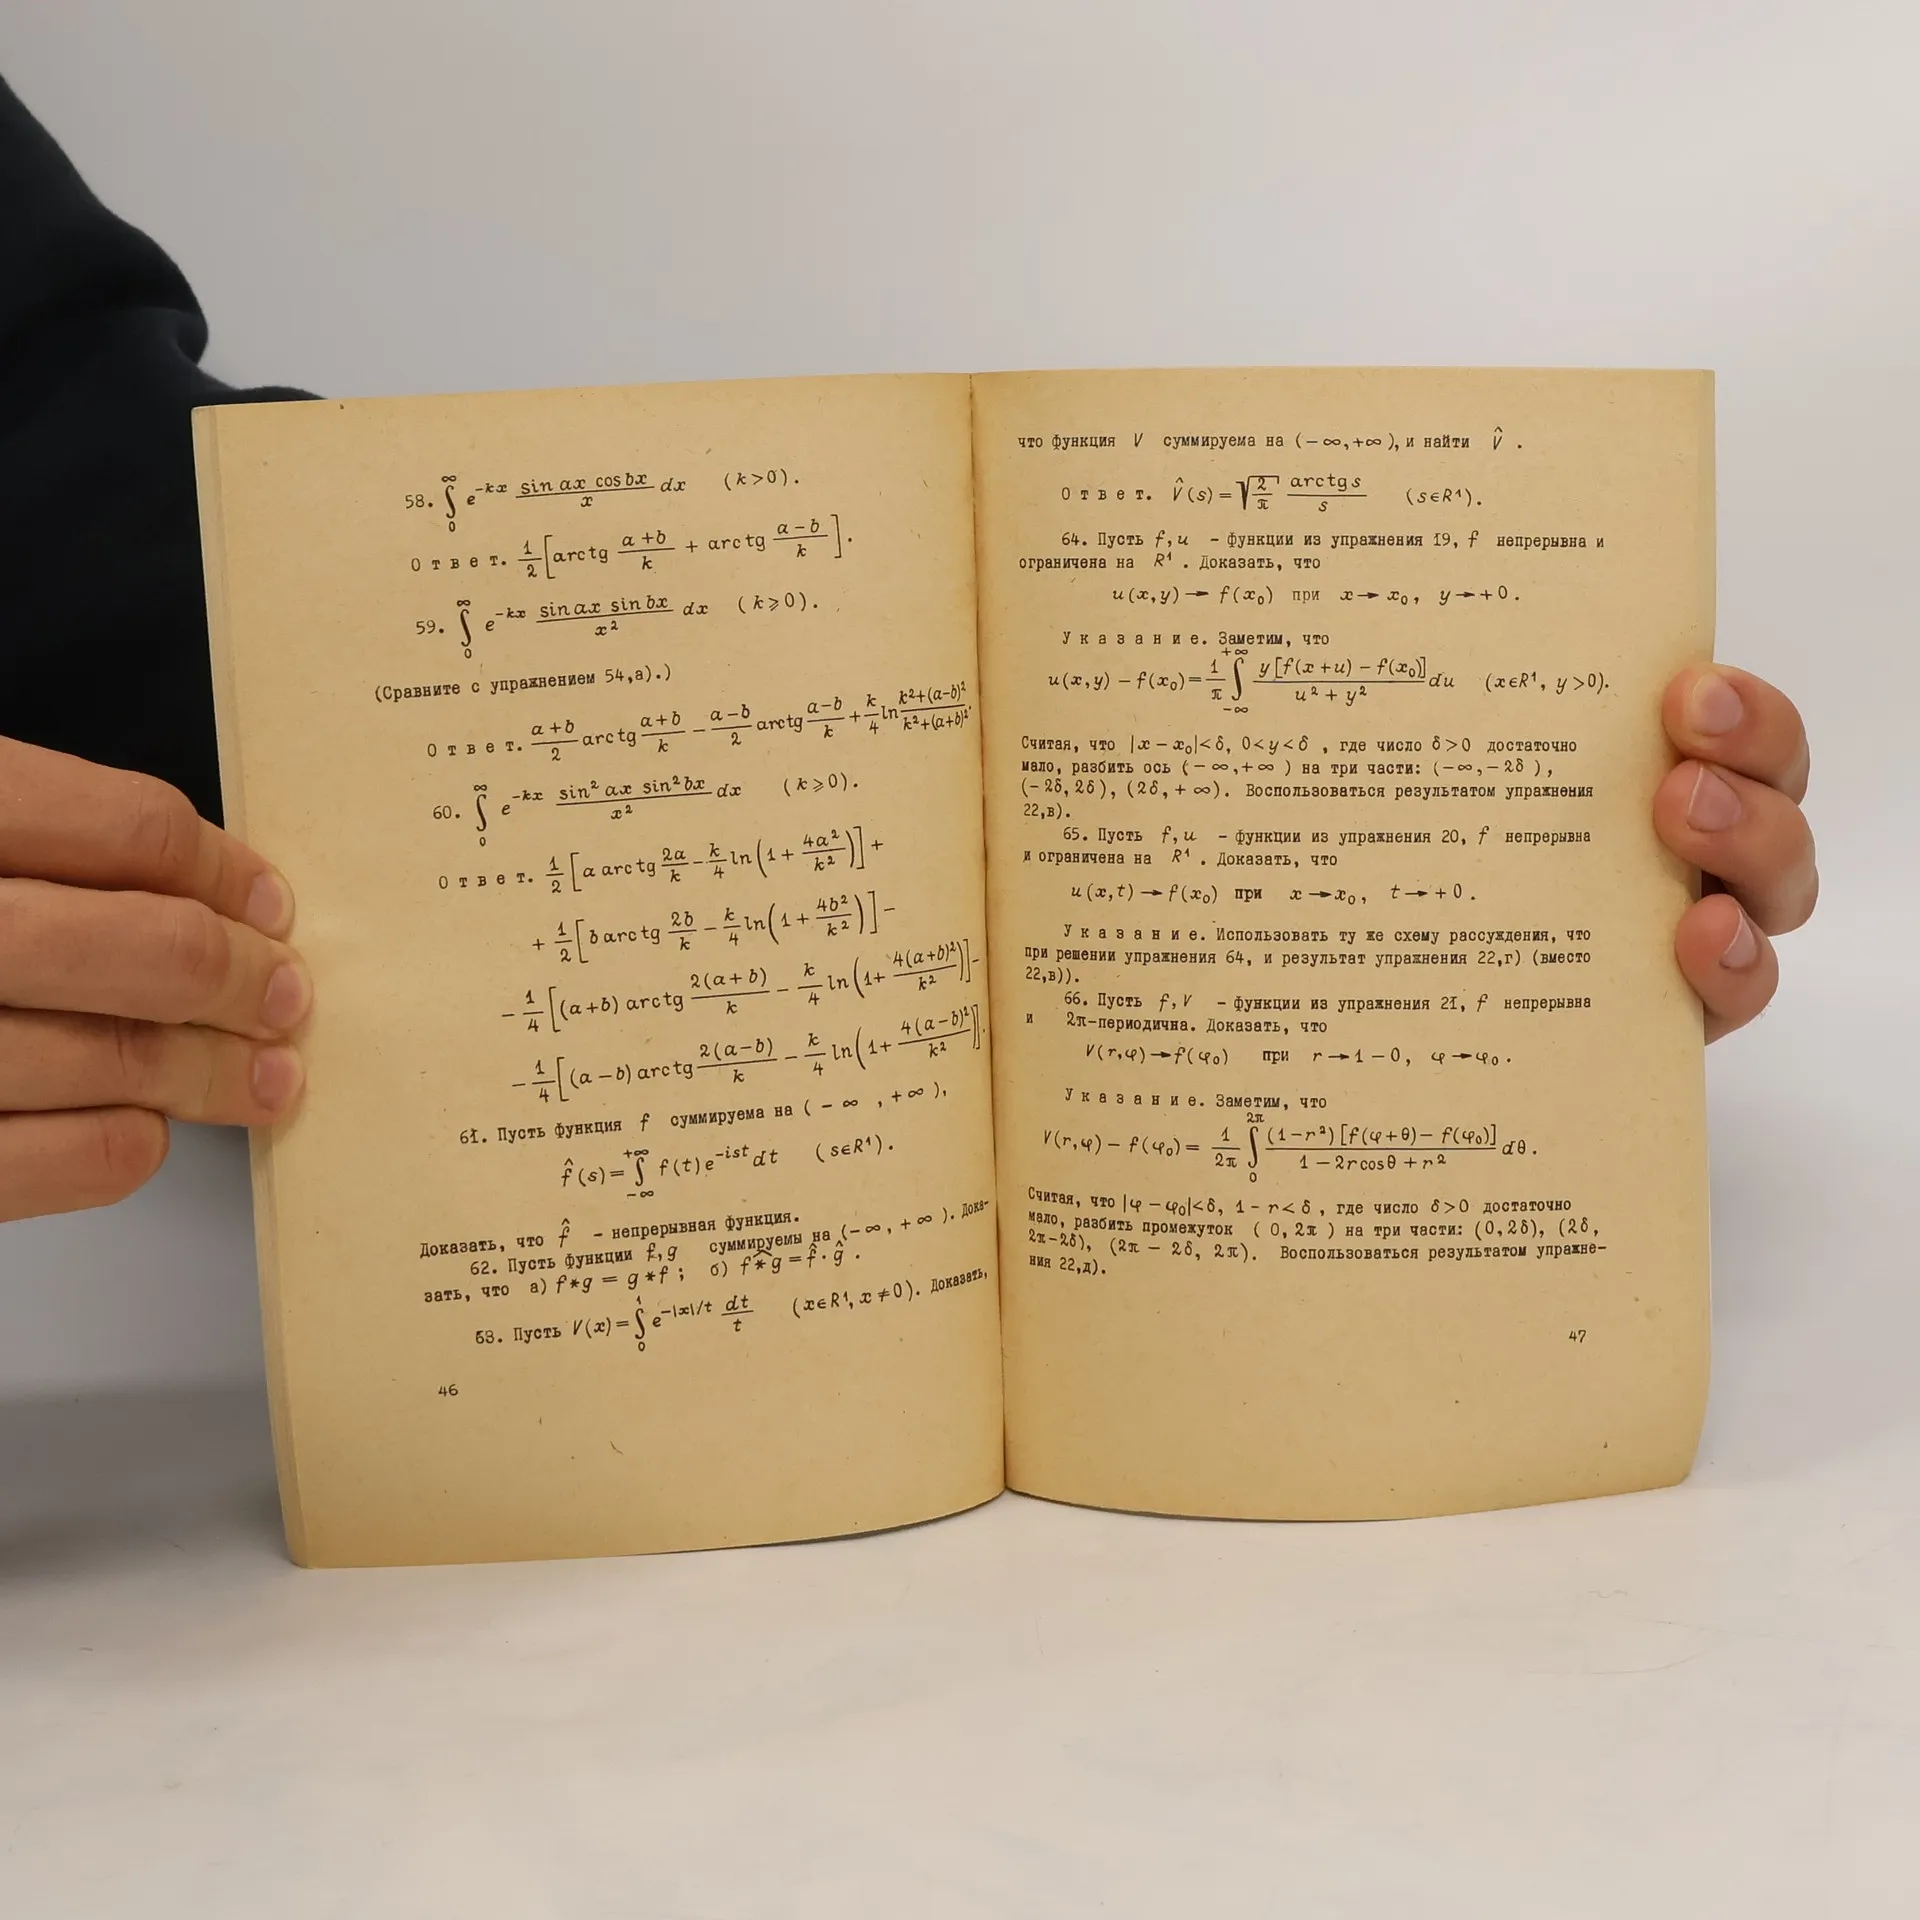 58. ∫₀^∞ e^{-kx} (sin ax cos bx)/x dx (k>0).
Ответ. 1/2 [arctg (a+b)/k + arctg (a−b)/k].
59. ∫₀^∞ e^{-kx} (sin ax sin bx)/x² dx (k⩾0).
(Сравните с упражнением 54,а).)
Ответ. (a+b)/2 arctg (a+b)/k − (a−b)/2 arctg (a−b)/k + k/4 ln (k²+(a−b)²)/(k²+(a+b)²).
60. ∫₀^∞ e^{-kx} (sin² ax sin² bx)/x² dx (k⩾0).
Ответ. 1/2 [a arctg 2a/k − k/4 ln(1+ 4a²/k²)] +
+ 1/2 [b arctg 2b/k − k/4 ln(1+ 4b²/k²)] −
− 1/4 [(a+b) arctg 2(a+b)/k − k/4 ln(1+ 4(a+b)²/k²)] −
− 1/4 [(a−b) arctg 2(a−b)/k − k/4 ln(1+ 4(a−b)²/k²)].
61. Пусть функция f суммируема на (−∞ ,+∞),
f̂(s)= ∫_{−∞}^{+∞} f(t)e^{−ist} dt (s∈R¹).
Доказать, что f̂ – непрерывная функция.
62. Пусть функции f,g суммируемы на (−∞, +∞). Дока-
зать, что а) f*g = g*f ; б) \widehat{f*g} = f̂·ĝ .
63. Пусть V(x)= ∫₀¹ e^{−|x|/t} dt/t (x∈R¹, x≠0). Доказать,
46
что функция V суммируема на (−∞,+∞), и найти V̂ .
Ответ. V̂(s)= √(2/π) (arctg s)/s (s∈R¹).
64. Пусть f,u – функции из упражнения 19, f непрерывна и
ограничена на R¹ . Доказать, что
u(x,y)→f(x₀) при x→x₀, y→+0.
Указание. Заметим, что
u(x,y)−f(x₀)= 1/π ∫_{−∞}^{+∞} y[f(x+u)−f(x₀)]/(u²+y²) du (x∈R¹, y>0).
Считая, что |x−x₀|<δ, 0<y<δ , где число δ>0 достаточно
мало, разбить ось (−∞,+∞) на три части: (−∞,−2δ),
(−2δ,2δ), (2δ,+∞). Воспользоваться результатом упражнения
22,в).
65. Пусть f,u – функции из упражнения 20, f непрерывна
и ограничена на R¹ . Доказать, что
u(x,t)→f(x₀) при x→x₀, t→+0.
Указание. Использовать ту же схему рассуждения, что
при решении упражнения 64, и результат упражнения 22,г) (вместо
22,в)).
66. Пусть f,V – функции из упражнения 21, f непрерывна
и 2π-периодична. Доказать, что
V(r,φ)→f(φ₀) при r→1−0, φ→φ₀.
Указание. Заметим, что
V(r,φ)−f(φ₀)= 1/2π ∫₀^{2π} (1−r²)[f(φ+θ)−f(φ₀)]/(1−2r cosθ+r²) dθ.
Считая, что |φ−φ₀|<δ, 1−r<δ , где число δ>0 достаточно
мало, разбить промежуток (0,2π) на три части: (0,2δ), (2δ,
2π−2δ), (2π−2δ, 2π). Воспользоваться результатом упражне-
ния 22,д).
47